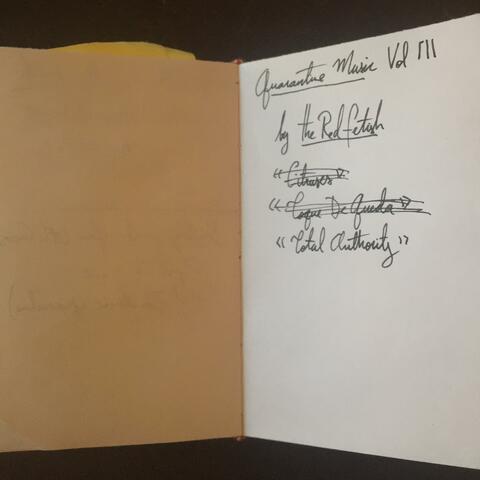 Quarantine Music Vol III
by the Red Fetish
"Citruses"
"Toque De Queda"
"Total Authority"